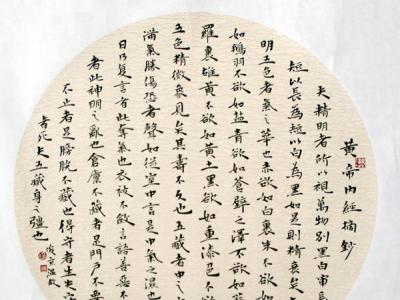 黄帝内經摘鈔
夫精明者所以視萬物別黑白審長
短以長為短以白為黑如是則精衰矣
明五色者氣之華也赤欲如白裹朱不欲如
如鵝羽不欲如鹽青欲如蒼璧之澤不欲如
羅裹雄黄不欲如黄土黑欲如重漆色不
五色精微象見矣其壽不久也五藏者中之
滿氣勝傷恐者聲如從室中言是中氣之濕也
日乃复言者此奪氣也衣被不斂言語善惡不
者此神明之亂也倉廩不藏者是門户不要
不止者是膀胱不藏也得守者生失
者死夫五藏身之彊也